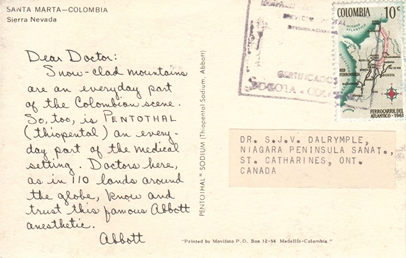 SANTA MARTA—COLOMBIA
Sierra Nevada
Dear Doctor:
Snow-clad mountains
are an everyday part
of the Colombian scene.
So, too, is PENTOTHAL
(thiopental) an every-
day part of the medical
setting. Doctors here,
as in 110 lands around
the globe, know and
trust this famous Abbott
anesthetic.
Abbott
PENTOTHAL® SODIUM (Thiopental Sodium, Abbott)
CERTIFICADO
BOGOTA - COLOMBIA
COLOMBIA 10¢
FERROCARRIL DEL
ATLANTICO - 1961
DR. S.J.V. DALRYMPLE,
NIAGARA PENINSULA SANAT.,
ST. CATHARINES, ONT.
CANADA
"Printed by Movifoto P.O. Box 12-54 Medellin-Colombia"